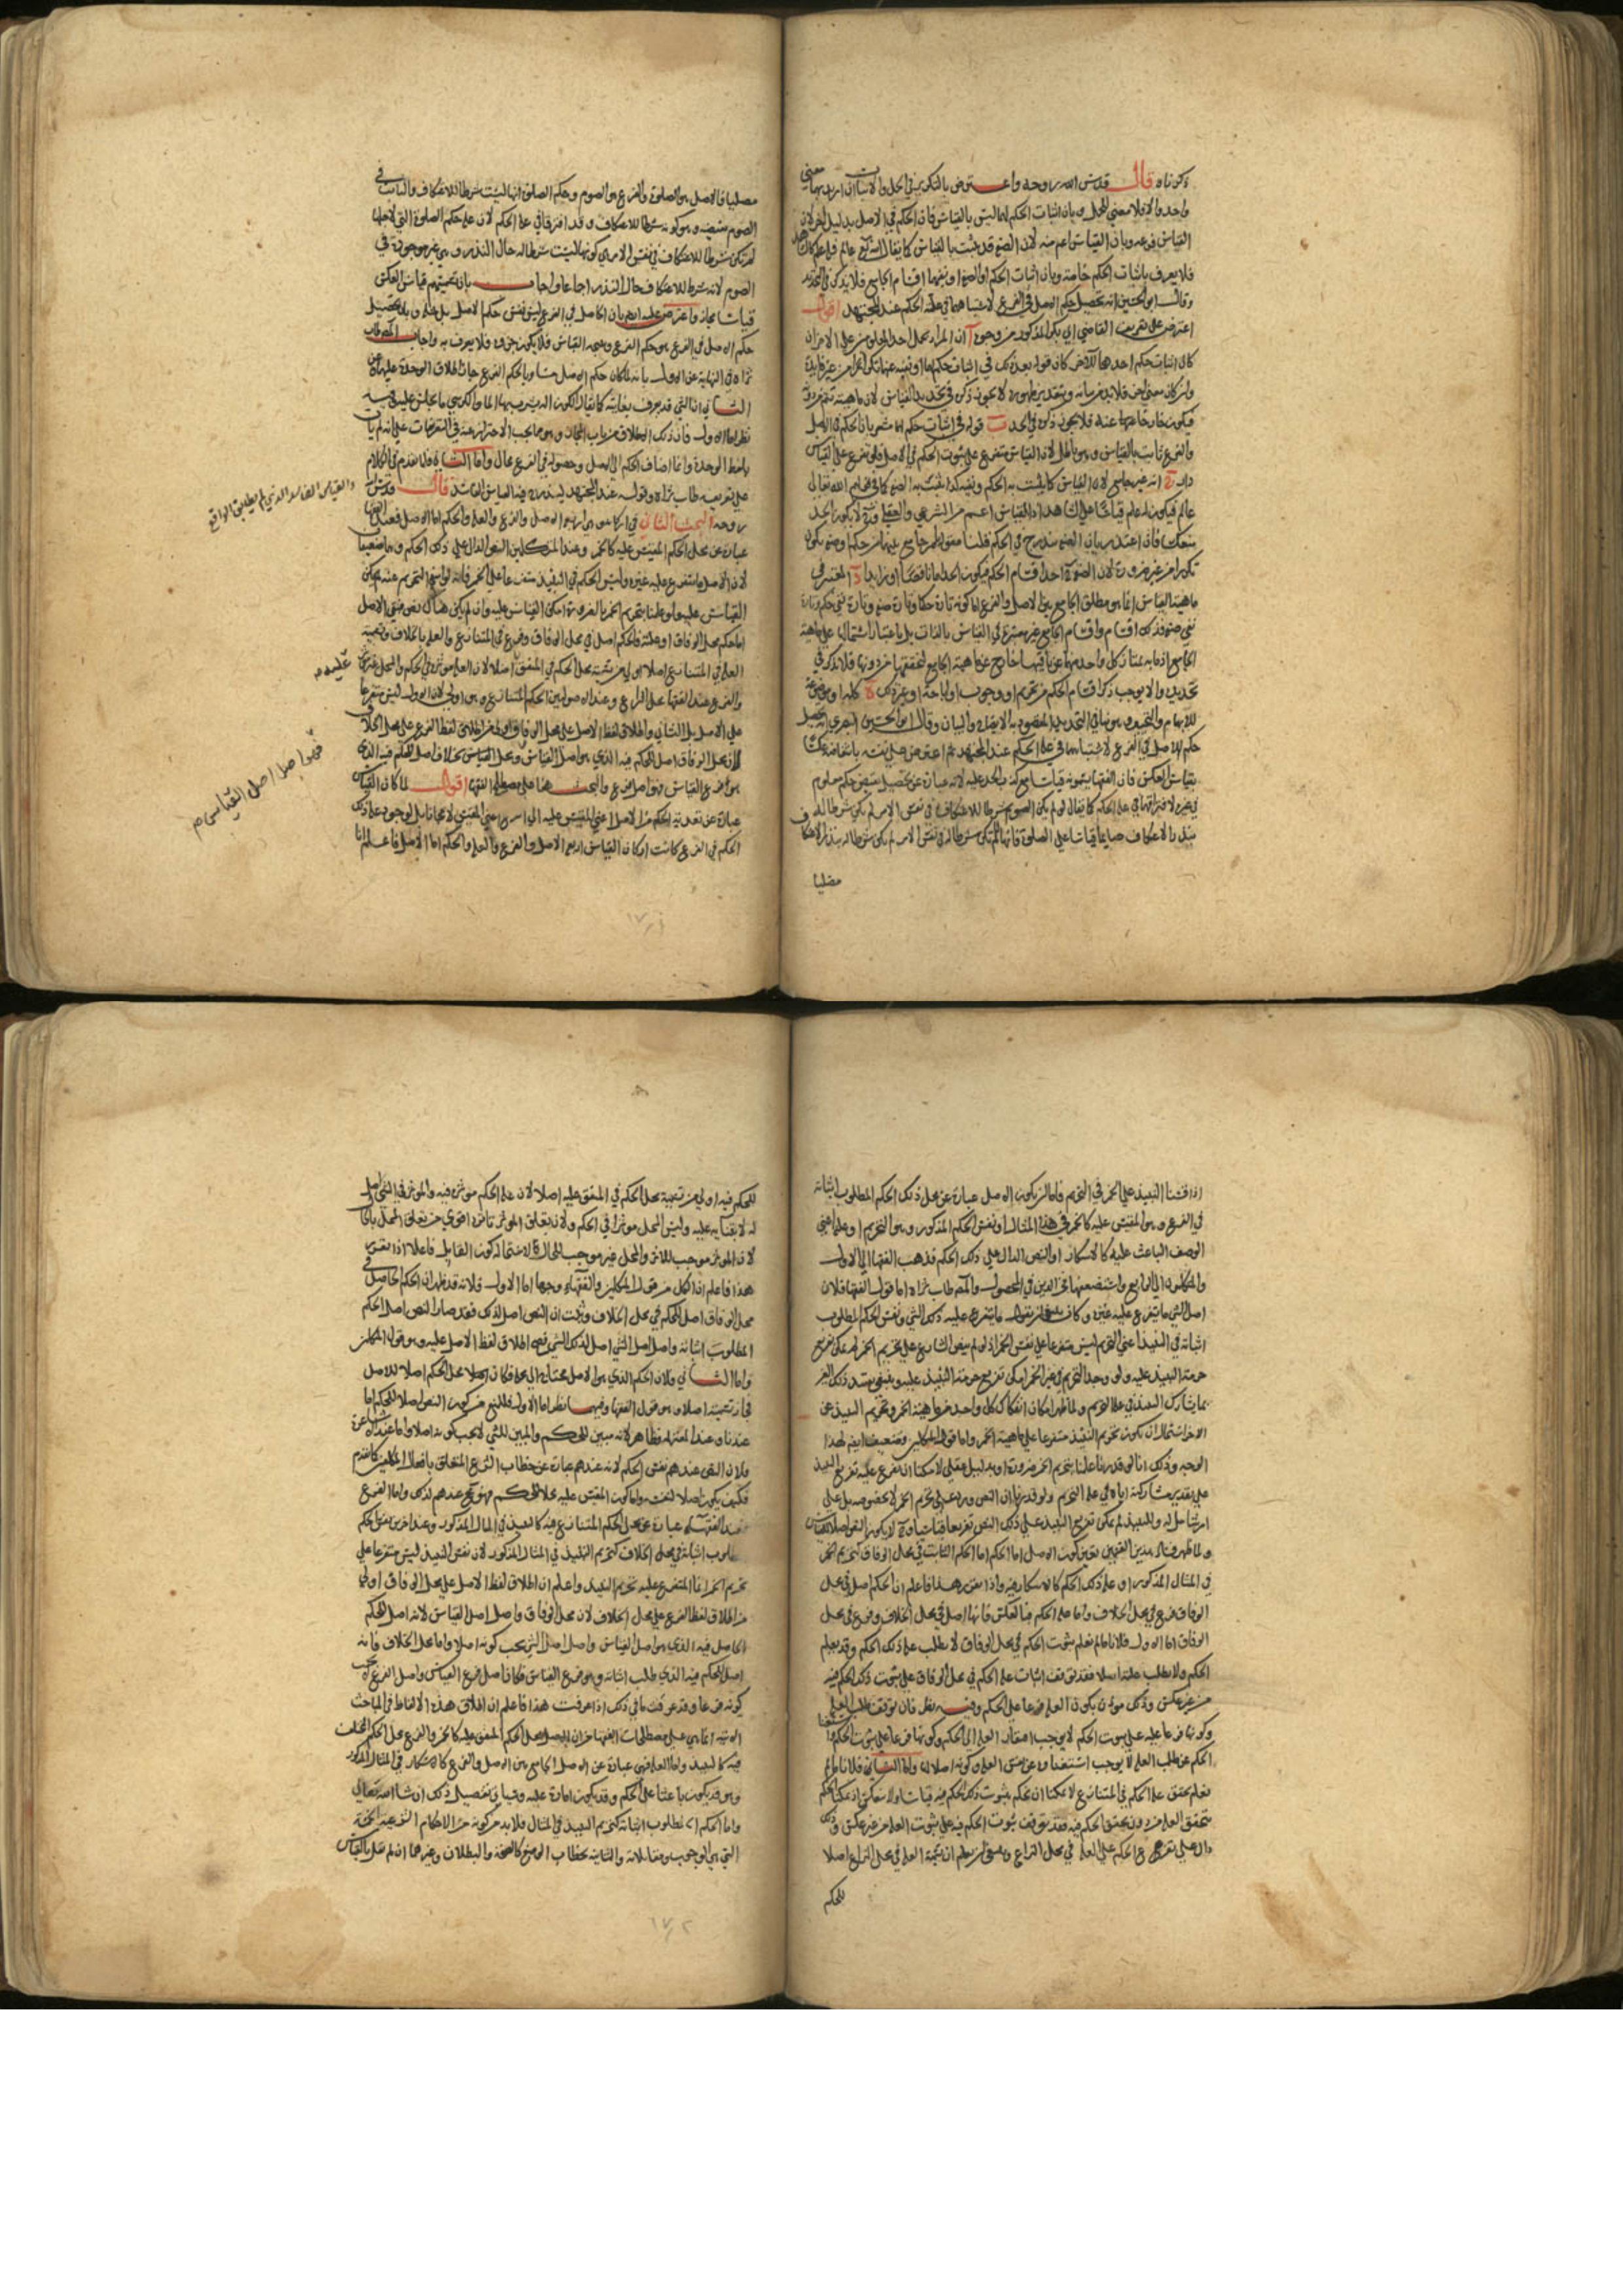 ذكرناه قال قدس الله روحه واعترض بالتكرير في الحمل والاثبات ان اريد بهما معنى
واحد والا فلا معنى للحمل وبان اثبات الحكم لهما ليس بالقياس فان الحكم في الاصل بدليل اخر لان
القياس فرعه وبان القياس اعم منه لان الصفة قد تثبت بالقياس كما يقال الله تعالى عالم فله علم كالشاهد
فلا يعرف باثبات الحكم خاصة وبان اثبات الحكم او الصفة او نفيهما اقسام الجامع فلا يذكر في التحديد
وقال ابو الحسين انه تحصيل حكم الاصل في الفرع لاشتباههما في علة الحكم عند المجتهد اقول
اعترض على تعريف القاضي ابي بكر المذكور من وجوه آ ان المراد بحمل احد المعلومين على الاخر ان
كان اثبات حكم احدهما للآخر كان قوله بعد ذلك في اثبات حكم لهما او نفيه عنهما تكرارا من غير فايدة
وان كان معنى اخر فلا بد من بيانه وبتقدير ظهوره لا يجوز ذكره في تحديد القياس لان ماهيته تتم بدونه
فيكون خارجا عنها فلا يجوز ذكره في الحد ب قوله في اثبات حكم لهما مشعر بان الحكم في الاصل
والفرع ثابت بالقياس وهو باطل لان القياس متفرع على ثبوت الحكم في الاصل فلو تفرع على القياس
دار ج انه غير جامع لان القياس كما يثبت به الحكم ونفيه كذا تثبت به الصفة كما في قولنا الله تعالى
عالم فيكون له علم قياسا على الشاهد اذ القياس اعم من الشرعي والعقلي وح لا يكون الحد
منعكسا فان اعتذر بان الصفة تندرج في الحكم قلنا فقوله بامر جامع بينهما من حكم او صفة يكون
تكرارا من غير ضرورة لان الصفة احد اقسام الحكم فيكون الحد اما ناقصا او زايدا د المعتبر في
ماهية القياس انما هو مطلق الجامع بين الاصل والفرع اما كونه تارة حكما وتارة صفة وتارة نفي حكم وتارة
نفي صفة فذلك اقسام واقسام الجامع غير معتبرة في القياس بالذات بل باعتبار اشتمالها على ماهية
الجامع اذ ما به يمتاز كل واحد منها عن باقيها خارج عن ماهية الجامع لتحققها من دونها فلا يذكر في
تحديده والا لوجب ذكر اقسام الحكم من تحريم او وجوب او اباحة او غير ذلك ه كلمة او موضوعة
للابهام والتحديد ينافي التحديد المقصود به الايضاح والبيان وقال ابو الحسين البصري انه تحصيل
حكم الاصل في الفرع لاشتباههما في علة الحكم عند المجتهد ثم اعترض على نفسه
بقياس العكس فان الفقها يسمونه قياسا مع كذب الحد عليه لانه عبارة عن تحصيل نقيض حكم معلوم
في غيره لافتراقهما في علة الحكم كما يقال لو لم يكن الصوم شرطا للاعتكاف في نفس الامر لم يكن شرطا له
بنذر الاعتكاف صايما قياسا على الصلوة فانها لما لم تكن شرطا له في نفس الامر لم تكن شرطا له بنذر الاعتكاف
مصليا
مصليا فالاصل هو الصلوة والفرع هو الصوم وحكم الصلوة انها ليست شرطا للاعتكاف والثابت في
الصوم نقيضه وهو كونه شرطا للاعتكاف وقد افترقا في علة الحكم لان علة حكم الصلوة التي لاجلها
لم تكن شرطا للاعتكاف في نفس الامر هي كونها ليست شرطا له حال النذر وهي غير موجودة في
الصوم لانه شرط للاعتكاف حال النذر اجماعا واجاب بان تسميتهم قياس العكس
قياسا مجاز واعترض عليه ايضا بان الحاصل في الفرع ليس نفس حكم الاصل بل مثله وبان تحصيل
حكم الاصل في الفرع هو حكم الفرع ونتيجة القياس فلا يكون جزءه فلا يعرف به واجاب المصنف طاب
ثراه في النهاية عن الاول بانه لما كان حكم الاصل مساويا لحكم الفرع جاز اطلاق الوحدة عليهما وعن
الثاني ان الشي قد يعرف بغايته كما يقال الكوز آلة يشرب بها الماء والكرسي ما يجلس عليه وفيه
نظر اما الاول فان ذلك الاطلاق من باب المجاز وهو مما يجب الاحتراز عنه في التعريفات على انه لم يأت
بلفظ الوحدة وانما اضاف الحكم الى الاصل وحصوله في الفرع محال واما الثاني فلما تقدم في الكلام
على تعريفه طاب ثراه وقوله عند المجتهد ليندرج فيه القياس الفاسد قال قدس
روحه البحث الثاني في اركانه وهي اربعة الاصل والفرع والعلة والحكم اما الاصل فعند الفقهاء
عبارة عن محل الحكم المقيس عليه كالخمر وعند المتكلمين النص الدال على ذلك الحكم وهما ضعيفان
لان الاصل ما يتفرع عليه غيره وليس الحكم في النبيذ متفرعا على الخمر فانه لو انتفى التحريم عنه لم يكن
القياس عليه ولو علمنا تحريم الخمر بالضرورة امكن القياس عليه وان لم يكن هناك نص فبقي الاصل
اما حكم محل الوفاق او علته فالحكم اصل في محل الوفاق وفرع في المتنازع والعلة بالخلاف وتسمية
العلة في المتنازع اصلا اولى من تسمية محل الحكم في المتفق اصلا لان العلة مؤثرة في الحكم والمحل غير مؤثر
والفرع عند الفقهاء محل النزاع وعند الاصوليين الحكم المتنازع وهو اولى لان الاول ليس متفرعا
على الاصل بل الثاني واطلاق لفظ الاصل على محل الوفاق اولى من اطلاق لفظ الفرع على محل الخلاف
لان محل الوفاق اصل للحكم فيه الذي هو اصل القياس ومحل القياس بخلاف اصل للحكم فيه الذي
هو فرع القياس فهو اصل فرع والبحث هنا على مصطلح الفقهاء اقول لما كان القياس
عبارة عن تعدية الحكم من الاصل اعني المقيس عليه الى الفرع اعني المقيس لايجاد ما به لوجود علة ذلك
الحكم في الفرع كانت اركان القياس اربعة الاصل والفرع والعلة والحكم اما الاصل فاعلم انا
والقياس الفاسد الذي لم يطابق الواقع
عليه
فهو اصل اصل القياس م
اذا قسنا النبيذ على الخمر في التحريم فاما ان يكون الاصل عبارة عن محل ذلك الحكم المطلوب اثباته
في الفرع وهو المقيس عليه كالخمر في هذا المثال او نفس الحكم المذكور وهو التحريم او علته اعني
الوصف الباعث عليه كالاسكار او النص الدال على ذلك الحكم فذهب الفقها الى الاول
والمتكلمون الى الرابع واستضعفهما فخر الدين في المحصول والمصنف طاب ثراه اما قول الفقها فلان
اصل الشي ما يتفرع عليه غيره وما يتفرع عليه ذلك الشي ونفس الحكم المطلوب
اثباته في النبيذ اعني التحريم ليس متفرعا على نفس الخمر اذ لو لم ينص الشارع على تحريم الخمر لم يمكن تفريع
حرمة النبيذ عليه ولو وجد التحريم في غير الخمر امكن تفريع حرمة النبيذ عليه
بما يشارك النبيذ في علة التحريم ولما ظهر امكان انفكاك كل واحد من ماهية الخمر وتحريم النبيذ عن
الاخر استحال ان يكون تحريم النبيذ متفرعا على ماهية الخمر واما قول المتكلمين فضعيف ايضا لهذا
الوجه وذلك انا لو قدرنا علمنا بتحريم الخمر ضرورة او بدليل عقلي لامكننا ان نفرع عليه تحريم النبيذ
على تقدير مشاركته اياه في علة التحريم ولو قدرنا ان النص ورد على تحريم الخمر لا بخصوصه بل على
امر شامل له وللنبيذ لم يمكن تفريع النبيذ على ذلك النص تفريعا قياسيا وح لا يكون النص اصلا للقياس
ولما ظهر فساد هذين القولين تعين كون الاصل اما الحكم الثابت في محل الوفاق كتحريم الخمر
في المثال المذكور او علة ذلك الحكم كالاسكار فيه واذا تقرر هذا فاعلم ان الحكم اصل في محل
الوفاق فرع في محل الخلاف واما علة الحكم فبالعكس فانها اصل في محل الخلاف وفرع في محل
الوفاق اما الاول فلانا ما لم نعلم ثبوت الحكم في محل الوفاق لا نطلب علة ذلك الحكم وقد نعلم
الحكم ولا نطلب علته اصلا فقد توقف اثبات علة الحكم في محل الوفاق على ثبوت ذلك الحكم فيه
من غير عكس وذلك مؤذن بكون العلة فرعا على الحكم وفيه نظر فان توقف طلب العلة
وكونها فرعا عليه على ثبوت الحكم لا يوجب افتقار العلة الى الحكم وكونها فرعا على ثبوت الحكم
الحكم عن طلب العلة لا يوجب استغناه عن نفس العلة وكونه اصلا لها واما الثاني فلانا ما لم
نعلم تحقق علة الحكم في المتنازع لا يمكننا ان نحكم بثبوت ذلك الحكم فيه قياسا ولا ينعكس اذ يمكننا الحكم
بتحقق العلة من دون تحقق الحكم فيه فقد توقف ثبوت الحكم فيه على ثبوت العلة من غير عكس وذلك
دال على تفرع الحكم على العلة في محل النزاع وبعض من يعلم ان تسمية العلة في محل النزاع اصلا
للحكم
للحكم فيه اولى من تسمية محل الحكم في المتفق عليه اصلا لان علة الحكم مؤثرة فيه والمؤثر في الشي اصل
له لابتنائه عليه وليس المحل مؤثرا في الحكم ولان تعلق المؤثر بالاثر اقوى من تعلق المحل بالحال
لان المؤثر موجب للاثر والمحل غير موجب للحال لاستحالة كون القابل فاعلا اذا تقرر
هذا فاعلم ان لكل من قول المتكلمين والفقهاء وجها اما الاول فلانه قد ظهر ان الحكم الحاصل في
محل الوفاق اصل الحكم في محل الخلاف وثبت ان النص اصل لذلك فقد صار النص اصل اصل الحكم
المطلوب اثباته واصل اصل الشي اصل لذلك الشي فصح اطلاق لفظ الاصل عليه وهو قول المتكلمين
واما الثاني فلان الحكم الذي هو الاصل محتاج الى محله فكان محل الحكم اصلا للاصل
فجاز تسميته اصلا وهو قول الفقهاء وفيهما نظر اما الاول فللمنع من كون النص اصلا للحكم اما
عندنا وعند المعتزلة فظاهر لانه مبين للحكم والمبين للشي لا يجب كونه اصلا واما عند الاشاعرة
فلان النص عندهم نفس الحكم لانه عندهم عبارة عن خطاب الشرع المتعلق بافعال المكلفين كما تقدم
فكيف يكون اصلا لنفسه واما كون المقيس عليه محلا للحكم فهو صح عندهم لذلك واما الفرع
عند الفقهاء عبارة عن محل الحكم المتنازع فيه كالنبيذ في المثال المذكور وعند اخرين نفس الحكم
المطلوب اثباته في محل الخلاف كتحريم النبيذ في المثال المذكور لان نفس النبيذ ليس متفرعا على
تحريم الخمر انما المتفرع عليه تحريم النبيذ واعلم ان اطلاق لفظ الاصل على محل الوفاق اولى
من اطلاق لفظ الفرع على محل الخلاف لان محل الوفاق واصل اصل القياس لانه اصل للحكم
الحاصل فيه الذي هو اصل القياس واصل اصل الشي يجب كونه اصلا واما محل الخلاف فانه
اصل للحكم فيه الذي طلب اثباته وهو فرع القياس فكان اصل فرع القياس واصل الفرع لا يجب
كونه فرعا وقد عرفت ما في ذلك اذا عرفت هذا فاعلم ان اطلاق هذه الالفاظ في المباحث
الاتية انما هي على مصطلحات الفقهاء من ان الاصل محل الحكم المتفق عليه كالخمر والفرع محل الحكم المختلف
فيه كالنبيذ واما العلة فهي عبارة عن الوصف الجامع بين الاصل والفرع كالاسكار في المثال المذكور
وهو قد يكون باعثا على الحكم وقد يكون امارة عليه وسياتي تفصيل ذلك ان شاء الله تعالى
واما الحكم المطلوب اثباته كتحريم النبيذ في المثال فلا بد من كونه من الاحكام الشرعية الخمسة
التي هي الوجوب ومقابلاته والثابتة بخطاب الوضع كالصحة والبطلان وغيرهما ان لم نقل بالقياس